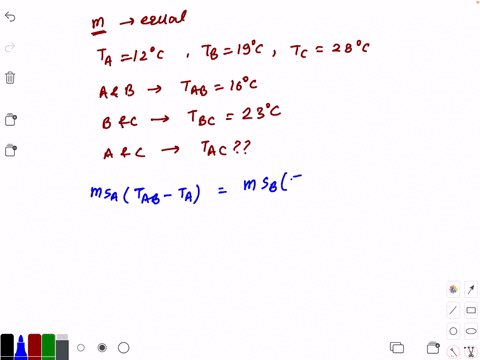 m → equal
T_A = 12°C , T_B = 19°C , T_C = 28°C
A & B → T_AB = 16°C
B & C → T_BC = 23°C
A & C → T_AC ??
m s_A ( T_AB - T_A ) = m s_B (